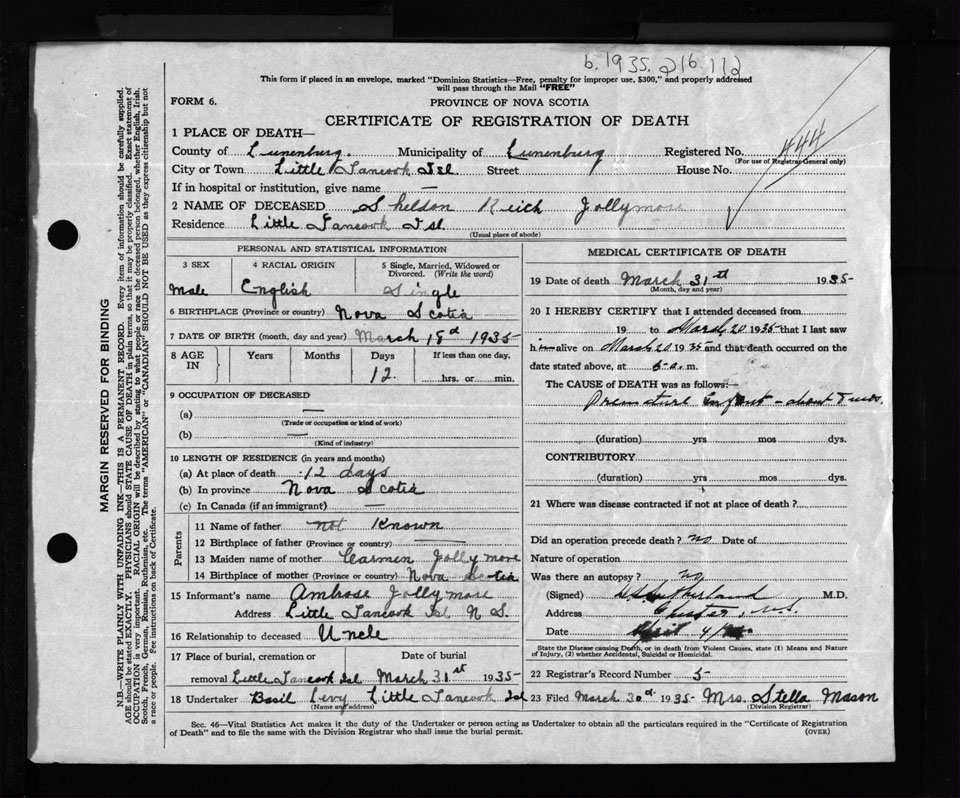 b. 1935. 216.112
This form if placed in an envelope, marked "Dominion Statistics—Free, penalty for improper use, $300," and properly addressed
will pass through the Mail "FREE"
FORM 6.
PROVINCE OF NOVA SCOTIA
CERTIFICATE OF REGISTRATION OF DEATH
444
1 PLACE OF DEATH—
County of Lunenburg. Municipality of Lunenburg Registered No.
(For use of Registrar General only)
City or Town Little Tancook Isl Street House No.
If in hospital or institution, give name —
2 NAME OF DECEASED Sheldon Reich Jollymore
Residence Little Tancook Isl
(Usual place of abode)
PERSONAL AND STATISTICAL INFORMATION
3 SEX 4 RACIAL ORIGIN 5 Single, Married, Widowed or Divorced. (Write the word)
Male English Single
6 BIRTHPLACE (Province or country) Nova Scotia
7 DATE OF BIRTH (month, day and year) March 18d 1935
8 AGE IN Years Months Days If less than one day,
12. hrs. or min.
9 OCCUPATION OF DECEASED
(a) —
(Trade or occupation or kind of work)
(b) —
(Kind of industry)
10 LENGTH OF RESIDENCE (in years and months)
(a) At place of death 12 days
(b) In province Nova Scotia
(c) In Canada (if an immigrant) —
Parents
11 Name of father not Known
12 Birthplace of father (Province or country) —
13 Maiden name of mother Cearmen Jollymore
14 Birthplace of mother (Province or country) Nova Scotia
15 Informant's name Ambrose Jollymore
Address Little Tancook Isl N S.
16 Relationship to deceased Uncle
17 Place of burial, cremation or Date of burial
removal Little Tancook Isl March 31st 1935
18 Undertaker Basil Levy Little Tancook Isl
(Name and address)
MEDICAL CERTIFICATE OF DEATH
19 Date of death March 31st 1935
(Month, day and year)
20 I HEREBY CERTIFY that I attended deceased from
19 to March 20 1935 that I last saw
him alive on March 20 1935 and that death occurred on the
date stated above, at a.m.
The CAUSE OF DEATH was as follows:—
Premature infant – about 7 mos.
(duration) yrs mos dys.
CONTRIBUTORY
(duration) yrs mos dys.
21 Where was disease contracted if not at place of death?
Did an operation precede death? no Date of
Nature of operation
Was there an autopsy? no
(Signed) Sutherland M.D.
Address Chester, N.S.
Date April 4/
State the Disease causing Death, or in Death from Violent Causes, state (1) Means and Nature
of Injury, (2) whether Accidental, Suicidal or Homicidal.
22 Registrar's Record Number 5
23 Filed March 30d 1935 Mrs. Stella Mason
(Division Registrar)
Sec. 46—Vital Statistics Act makes it the duty of the Undertaker or person acting as Undertaker to obtain all the particulars required in the "Certificate of Registration
of Death" and to file the same with the Division Registrar who shall issue the burial permit.
(OVER)
MARGIN RESERVED FOR BINDING
N.B.—WRITE PLAINLY WITH UNFADING INK—THIS IS A PERMANENT RECORD. Every item of information should be carefully supplied.
AGE should be stated EXACTLY. PHYSICIANS should STATE CAUSE OF DEATH in plain terms, so that it may be properly classified. Exact statement of
OCCUPATION is very important. RACIAL ORIGIN will be described by stating to what people or race the deceased person belonged, whether English, Irish,
Scotch, French, German, Russian, Ruthenian, etc. The terms "AMERICAN" or "CANADIAN" SHOULD NOT BE USED as they express citizenship but not
a race or people. See instructions on back of Certificate.